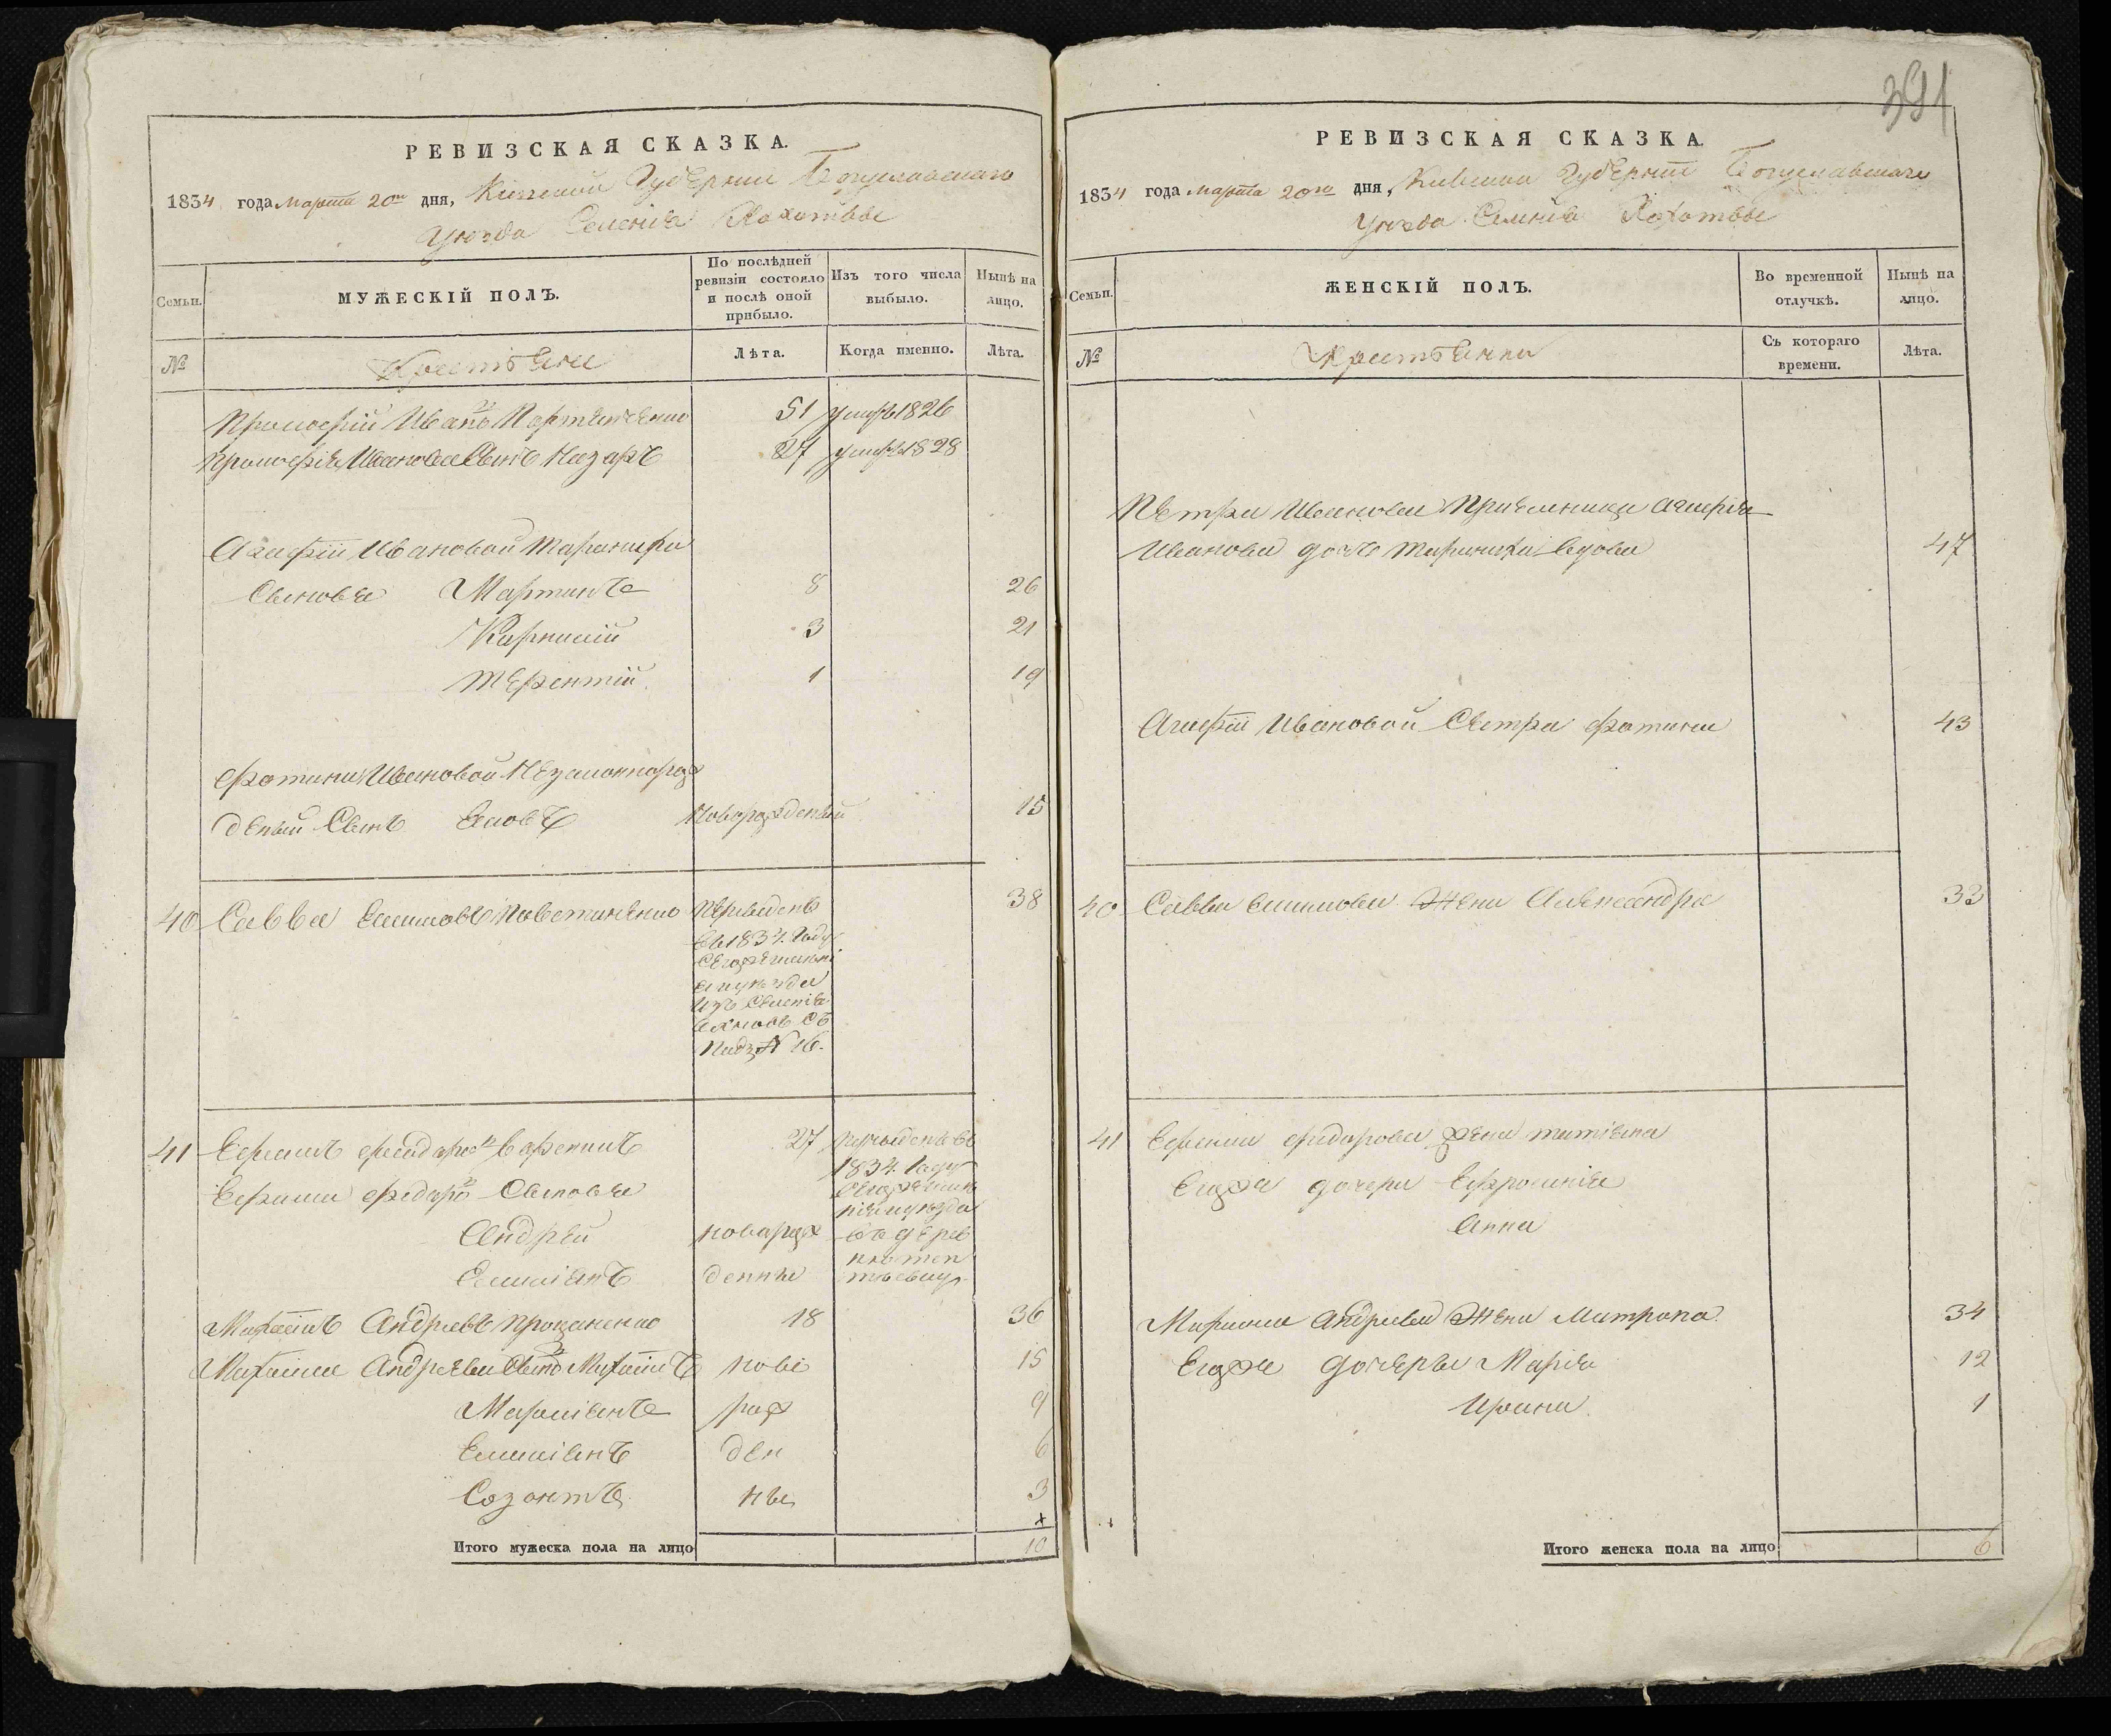 РЕВИЗСКАЯ СКАЗКА.
1834 года Марта 20го дня, Киевской Губернии Богуславскаго
Уезда Селения Похотвое
Семьи.
МУЖЕСКІЙ ПОЛЪ.
По послѣдней ревизіи состояло и послѣ оной прибыло.
Изъ того числа выбыло.
Нынѣ на лицо.
№
Крестьяне
Лѣта.
Когда именно.
Лѣта.
Прокофій Иванъ 51 умръ 1826
Прокофія Иванова Сынъ Назаръ 27 умръ 1828
Агафіи Ивановой
Сыновья Мартинъ 8 26
Карнилій 3 21
Терентій 1 19
Фотини Ивановой Незаконнорож
деный Сынъ Яковъ новорожденый 15
40 Савва 38
Переведенъ
въ 1834. Году
Сегожъ
уезда
Изъ Селенія
съ
подъ № 16.
41 Ефимъ Федоровъ 27
переведенъ въ
1834. Году
Сегожъ
уезда
въ дерев
ню
Ефима Федоро Сыновья
Андрей новарож
Емиліянъ денные
Михаилъ Андреевъ Проценко 18 36
Михаила Андреева Сынъ Михаилъ нове 15
Мароліянъ рож 9
Емиліянъ ден 6
Созонтъ ны 3
Итого мужеска пола на лицо 10
391
РЕВИЗСКАЯ СКАЗКА.
1834 года Марта 20го дня, Киевской Губерніи Богуславскаго
Уезда Селенія Похотвое
Семьи.
ЖЕНСКІЙ ПОЛЪ.
Во временной отлучкѣ.
Нынѣ на лицо.
№
Крестьянки
Съ котораго времени.
Лѣта.
Петра Иванова Агафія
Иванова дочь вдова 47
Агафіи Ивановой Сестра Фотина 43
40 Саввы жена Александра 33
41 Ефима Федорова жена Татіяна
Егожъ дочери Ефросинія
Анна
Михаила Андреева Жена Матрона 34
Егоже дочеры Марія 12
Ирина 1
Итого женска пола на лицо 6